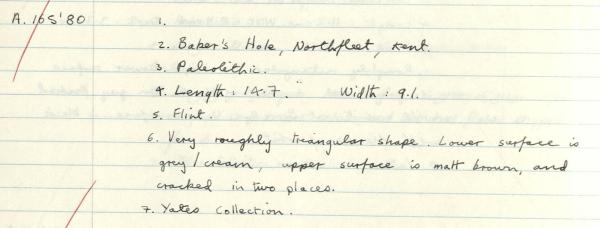 A. 105'80 1.
2. Baker's Hole, Northfleet, Kent.
3. Paleolithic.
4. Length: 14.7. Width: 9.1.
5. Flint.
6. Very roughly triangular shape. Lower surface is
grey/cream, upper surface is matt brown, and
cracked in two places.
7. Yates Collection.